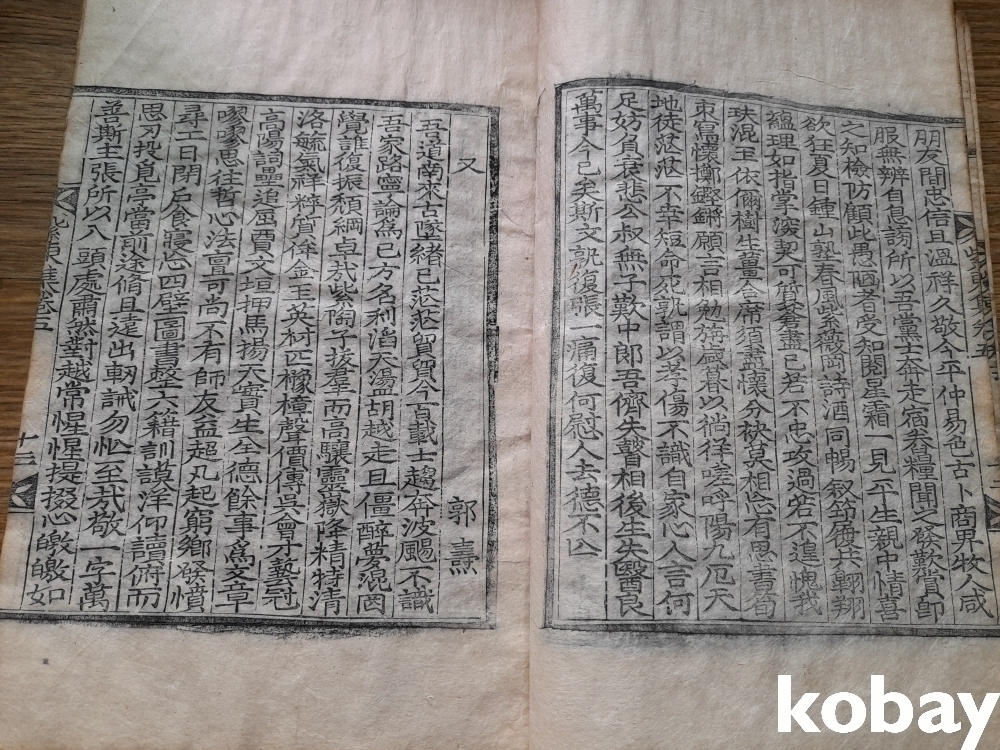 朋友間忠信且溫祥久敬今平仲易色古卜商男牧人咸
服無辨自息謗所以吾黨士奔走宿舂糧聞之發歎賞卽
之知檢防顧此愚陋者受知閱星霜一見平生親中情喜
欲狂夏日鍾山塾春風紫薇岡詩酒同暢叙節屨共翶翔
蘊理如指掌深契可質蒼盡己若不忠攻過若不遑愧我
玞混玉依爾樹生薑今席須盡懷分袂莫相忘有思書荀
束寫懷擲鏗鏘願言相勉旃感暮以徜徉嗟呼陽九厄天
地徒茫茫不幸短命死孰謂以孝傷不識自家心人言何
足妨負哀悲令叔無子歎中郎吾儕失聲相後生失醫良
萬事今已矣斯文孰復張一痛復何慰人去德不亾
又 郭燾
吾道南來古墜緖已茫茫貿貿今百載士趨奔波颺不識
吾家路寧論爲己方名利滔天盪胡越走且僵醉夢漫罔
覺誰復振頹綱卓哉紫陶子拔羣而高驤靈嶽降精特淸
洛毓氣祥粹質侔金玉英材匹櫲樟聲價傳吳會才藝冠
高陽詞壘追屈賈文垣押馬揚天實生全德餘事爲文章
嘐嘐思往哲心法亶可尙不有師友益超凡起窮鄕發憤
尋工日閉戶食寢忘四壁圖書整六籍訓謨洋仰讀俯而
思刃投見亭當前途脩且遠出軔誡勿忙至哉敬一字萬
善斯主張所以入頭處肅然對越常惺惺提掇心皦皦如
十二
kobay